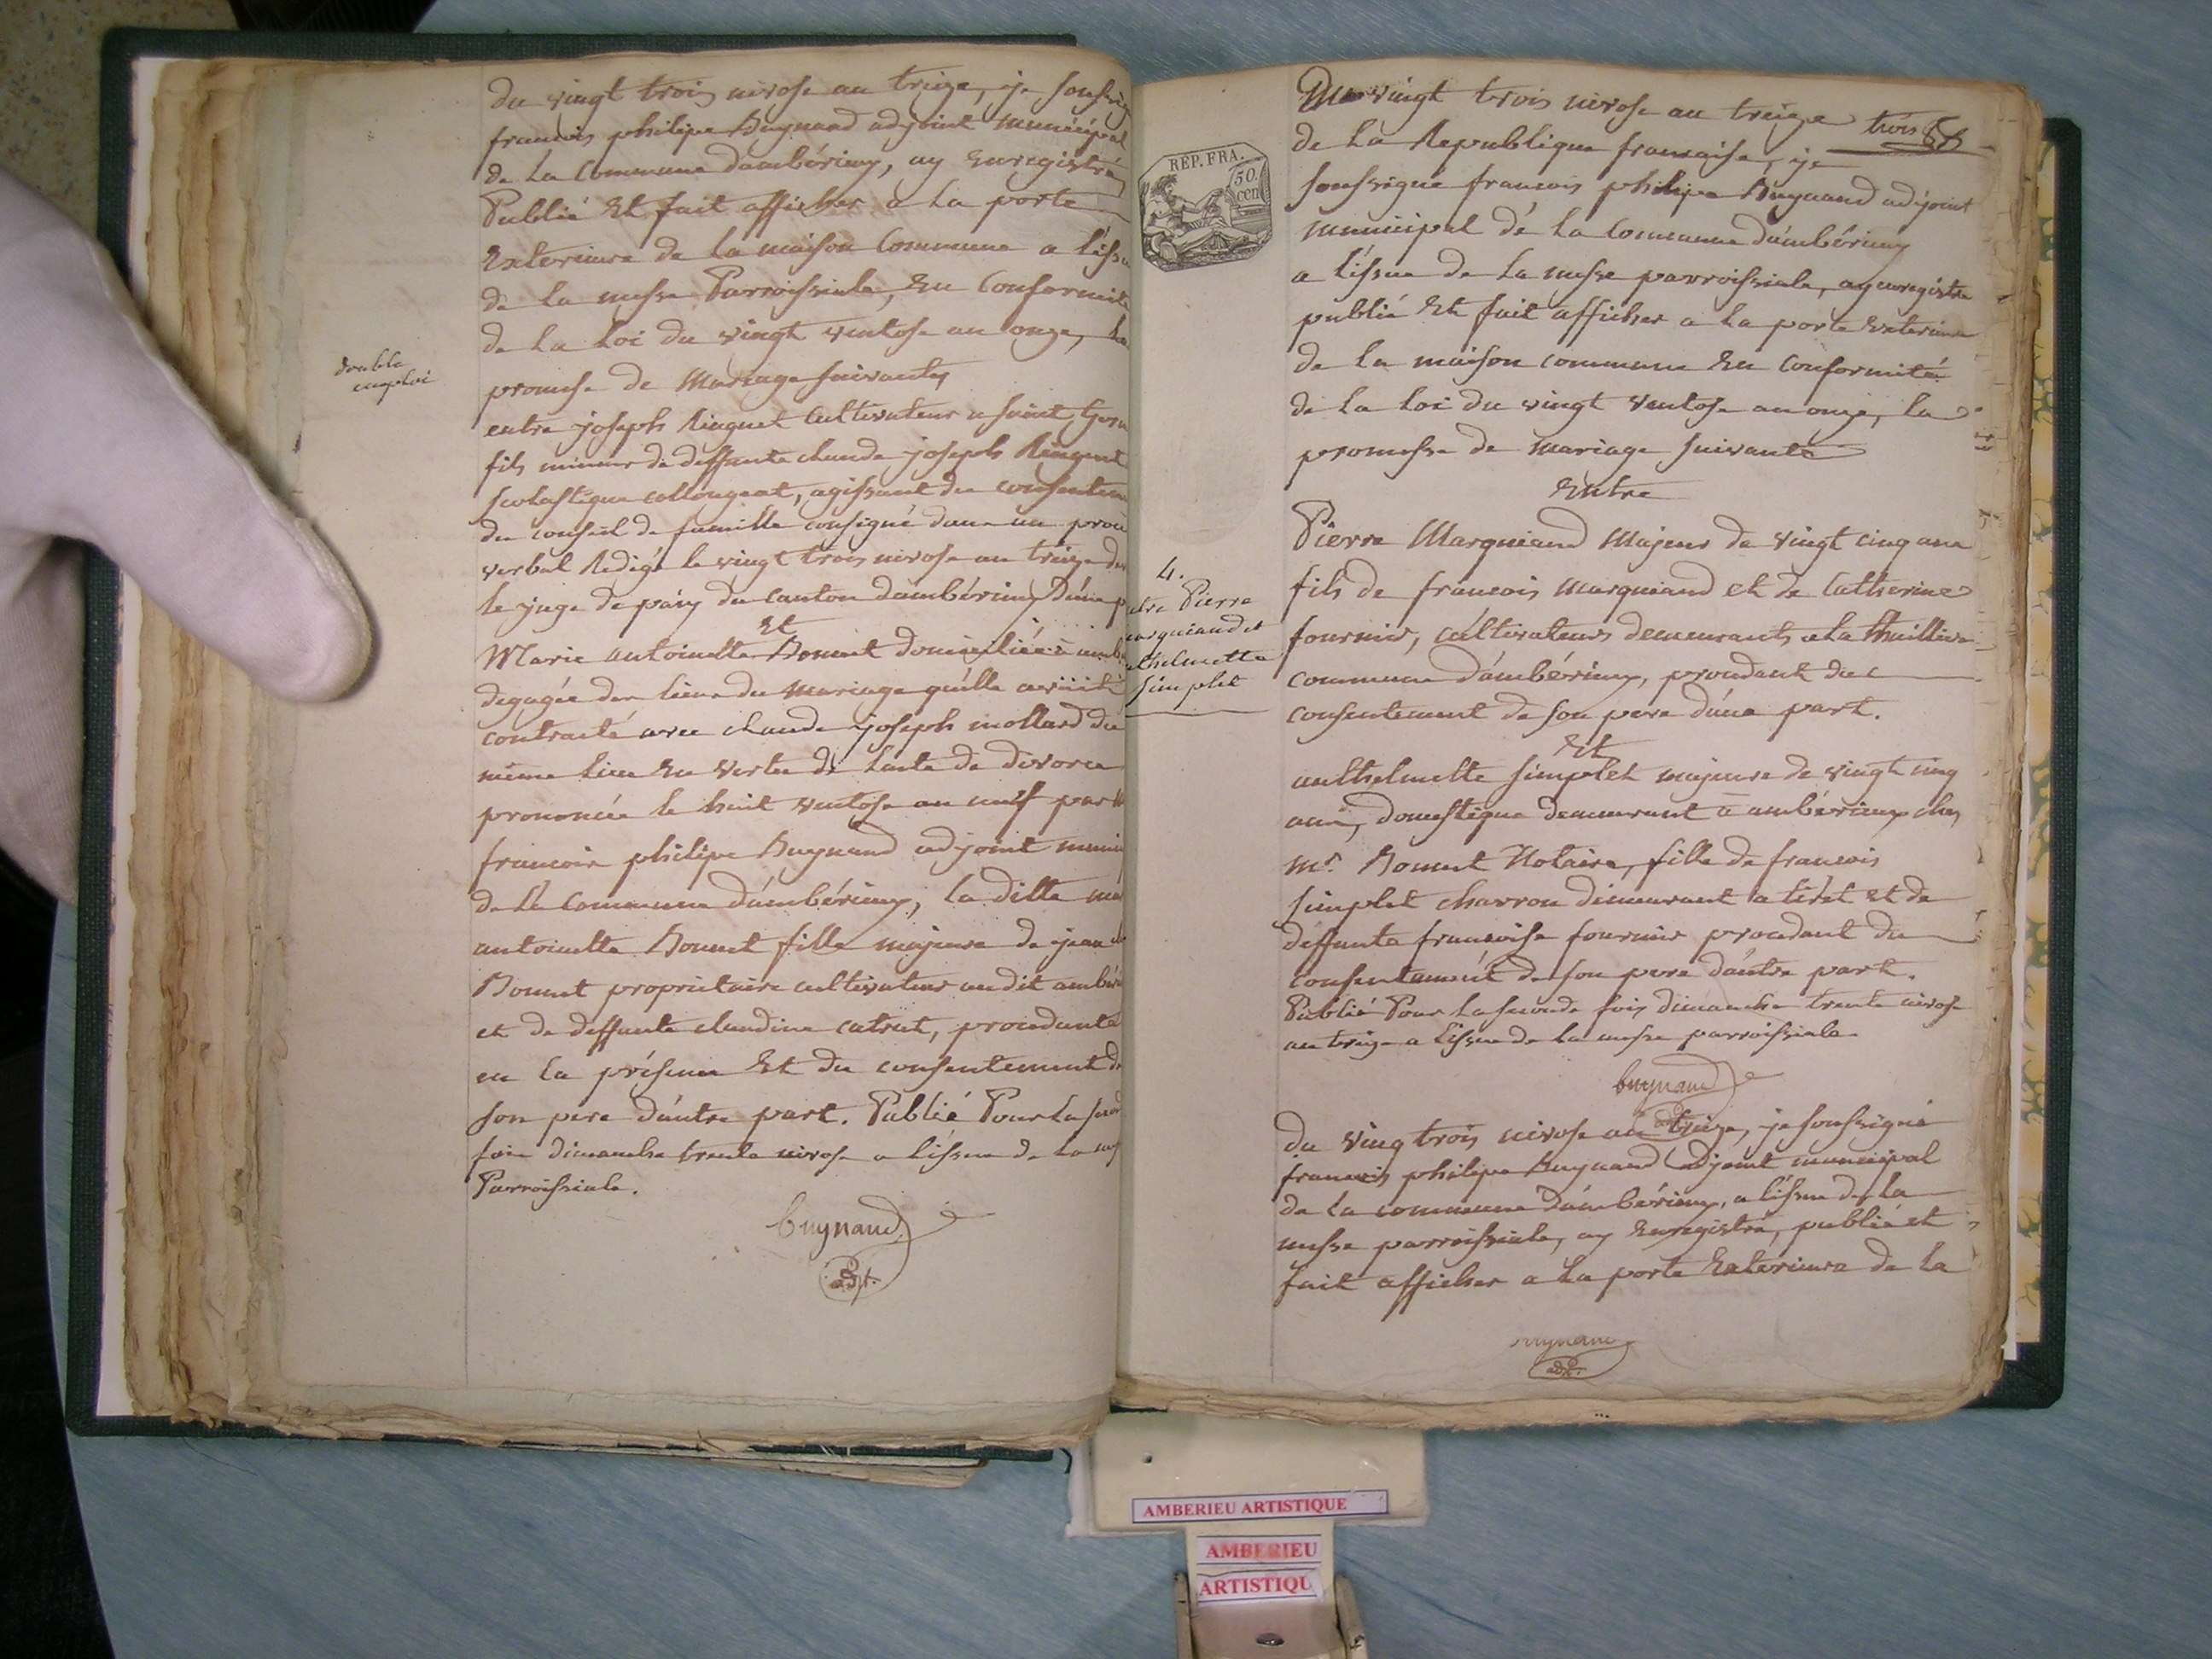 du vingt trois nivose an treize, je soussig
francois philipe Buynand adjoint municipal
de la Commune dambérieux, ay Enregistré
Publié Et fait afficher a la porte
Exterieure de la maison Commune a l'issu
de la messe Parroissiale, En Conformité
de la Loi du vingt ventose an onze, la
promesse de Mariage suivante,
double
emploi
entre joseph Ringuet Cultivateur a saint
fils mineur de deffunts claude joseph Ringuet
scolastique collongeat, agissant du consentem
du conseil de famille consigné dans un procé
verbal Redigé le vingt trois nivose an treize de
le juge de paix du canton dambérieux D'une p
Et
Marie antoinette Bonnet domiciliée à amb
degagée des liens du mariage qu'elle avoit
contracté avec claude joseph mollard du
même lieu En vertu de lacte de divorce
prononcée le huit ventose an neuf par
francois philipe Buynand adjoint munici
de la Commune d'ambérieux, la ditte ma
antoinette Bonnet fille majeure de jean
Bonnet proprietaire cultivateur audit ambéri
et de deffunte claudine catret, procedante
en la présence Et du consentement de
son pere d'autre part. Publié Pour la second
fois dimanche trente nivose a l'issue de la mes
Parroissiale.
buynand
adjt.
Du vingt trois nivose an treize
trois
68
de la Republique francaise, je
soussigné francois philipe Buynand adjoint
municipal de la Commune d'ambérieux
a l'issue de la messe parroissiale, ay enregistré
publié Et fait afficher a la porte Exterieure
de la maison commune En conformité
de la Loi du vingt ventose an onze, la
promesse de mariage suivante
Entre
REP. FRA.
50.
cen
4.
tre Pierre
arguiand et
thelmette
Simplet
Pierre Marguiand Majeur de vingt cinq ans
fils de francois marguiand et de Catherine
fournier, cultivateurs demeurants a la
commune d'ambérieux, procedant du
consentement de son pere d'une part.
Et
anthelmette simplet majeure de vingt cinq
ans, domestique demeurant à ambérieux chez
mr. Bonnet Notaire, fille de francois
simplet charron demeurant a tiret et de
deffunte francoise fournier procedant du
consentement de son pere d'autre part.
Publié Pour la seconde fois dimanche trente nivose
an treize a l'issue de la messe parroissiale
buynand
adjt
du ving trois nivose an treize, je soussigné
francois philipe Buynand adjoint municipal
de la commune d'ambérieux, a l'issue de la
messe parroissiale, ay Enregistré, publié et
fait afficher a la porte Exterieure de la
buynand
adjt.
AMBERIEU ARTISTIQUE
AMBERIEU
ARTISTIQU